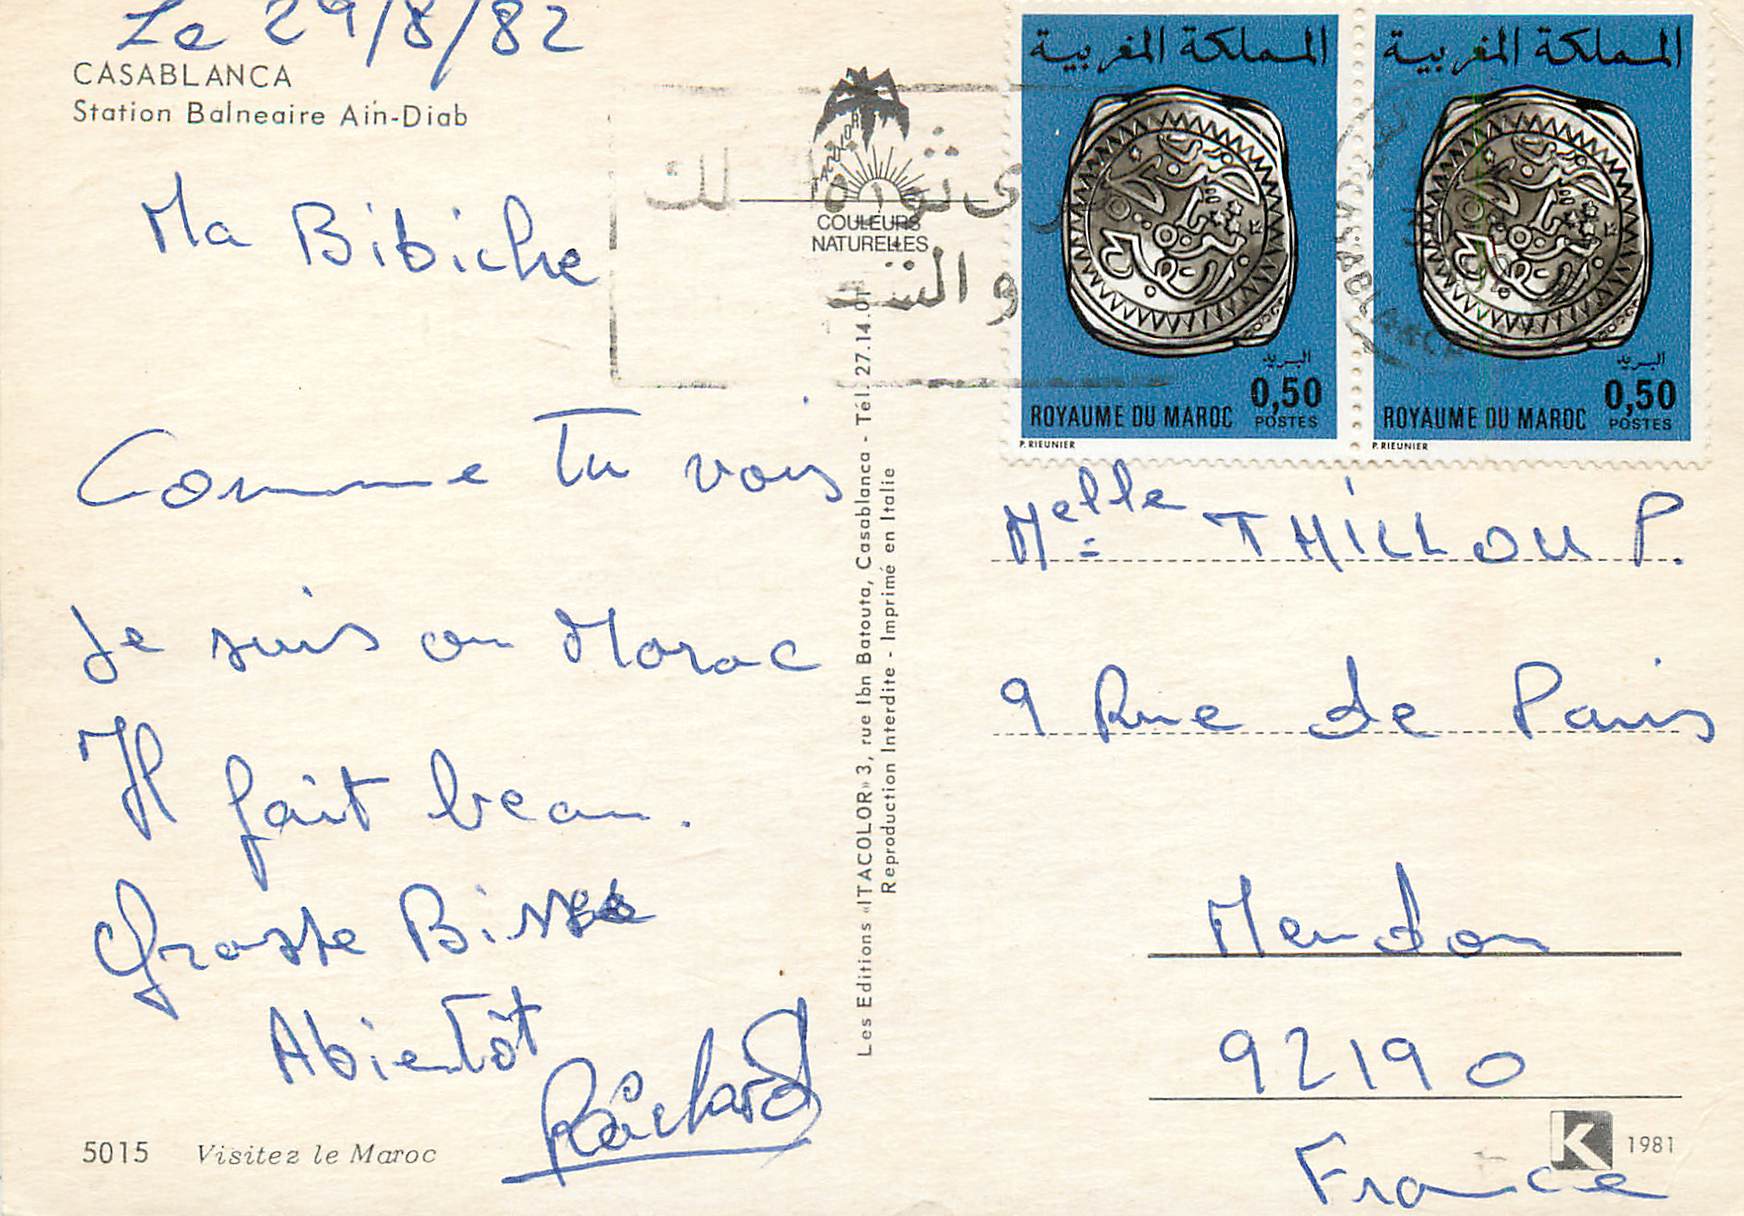 Le 29/8/82
CASABLANCA
Station Balneaire Ain-Diab
Ma Bibiche
Comme Tu vois
Je suis au Maroc
Il fait beau.
Grosse Bisse
Abientôt
Richard
5015 Visitez le Maroc
COULEURS
NATURELLES
و
Les Editions «ITACOLOR» 3, rue Ibn Batouta, Casablanca - Tél. 27.14.01
Reproduction Interdite - Imprimé en Italie
المملكة المغربية
البريد
0,50
ROYAUME DU MAROC POSTES
P. RIEUNIER
المملكة المغربية
البريد
0,50
ROYAUME DU MAROC POSTES
P. RIEUNIER
Melle THILLOU P.
9 Rue de Paris
Meudon
92190
France
K 1981